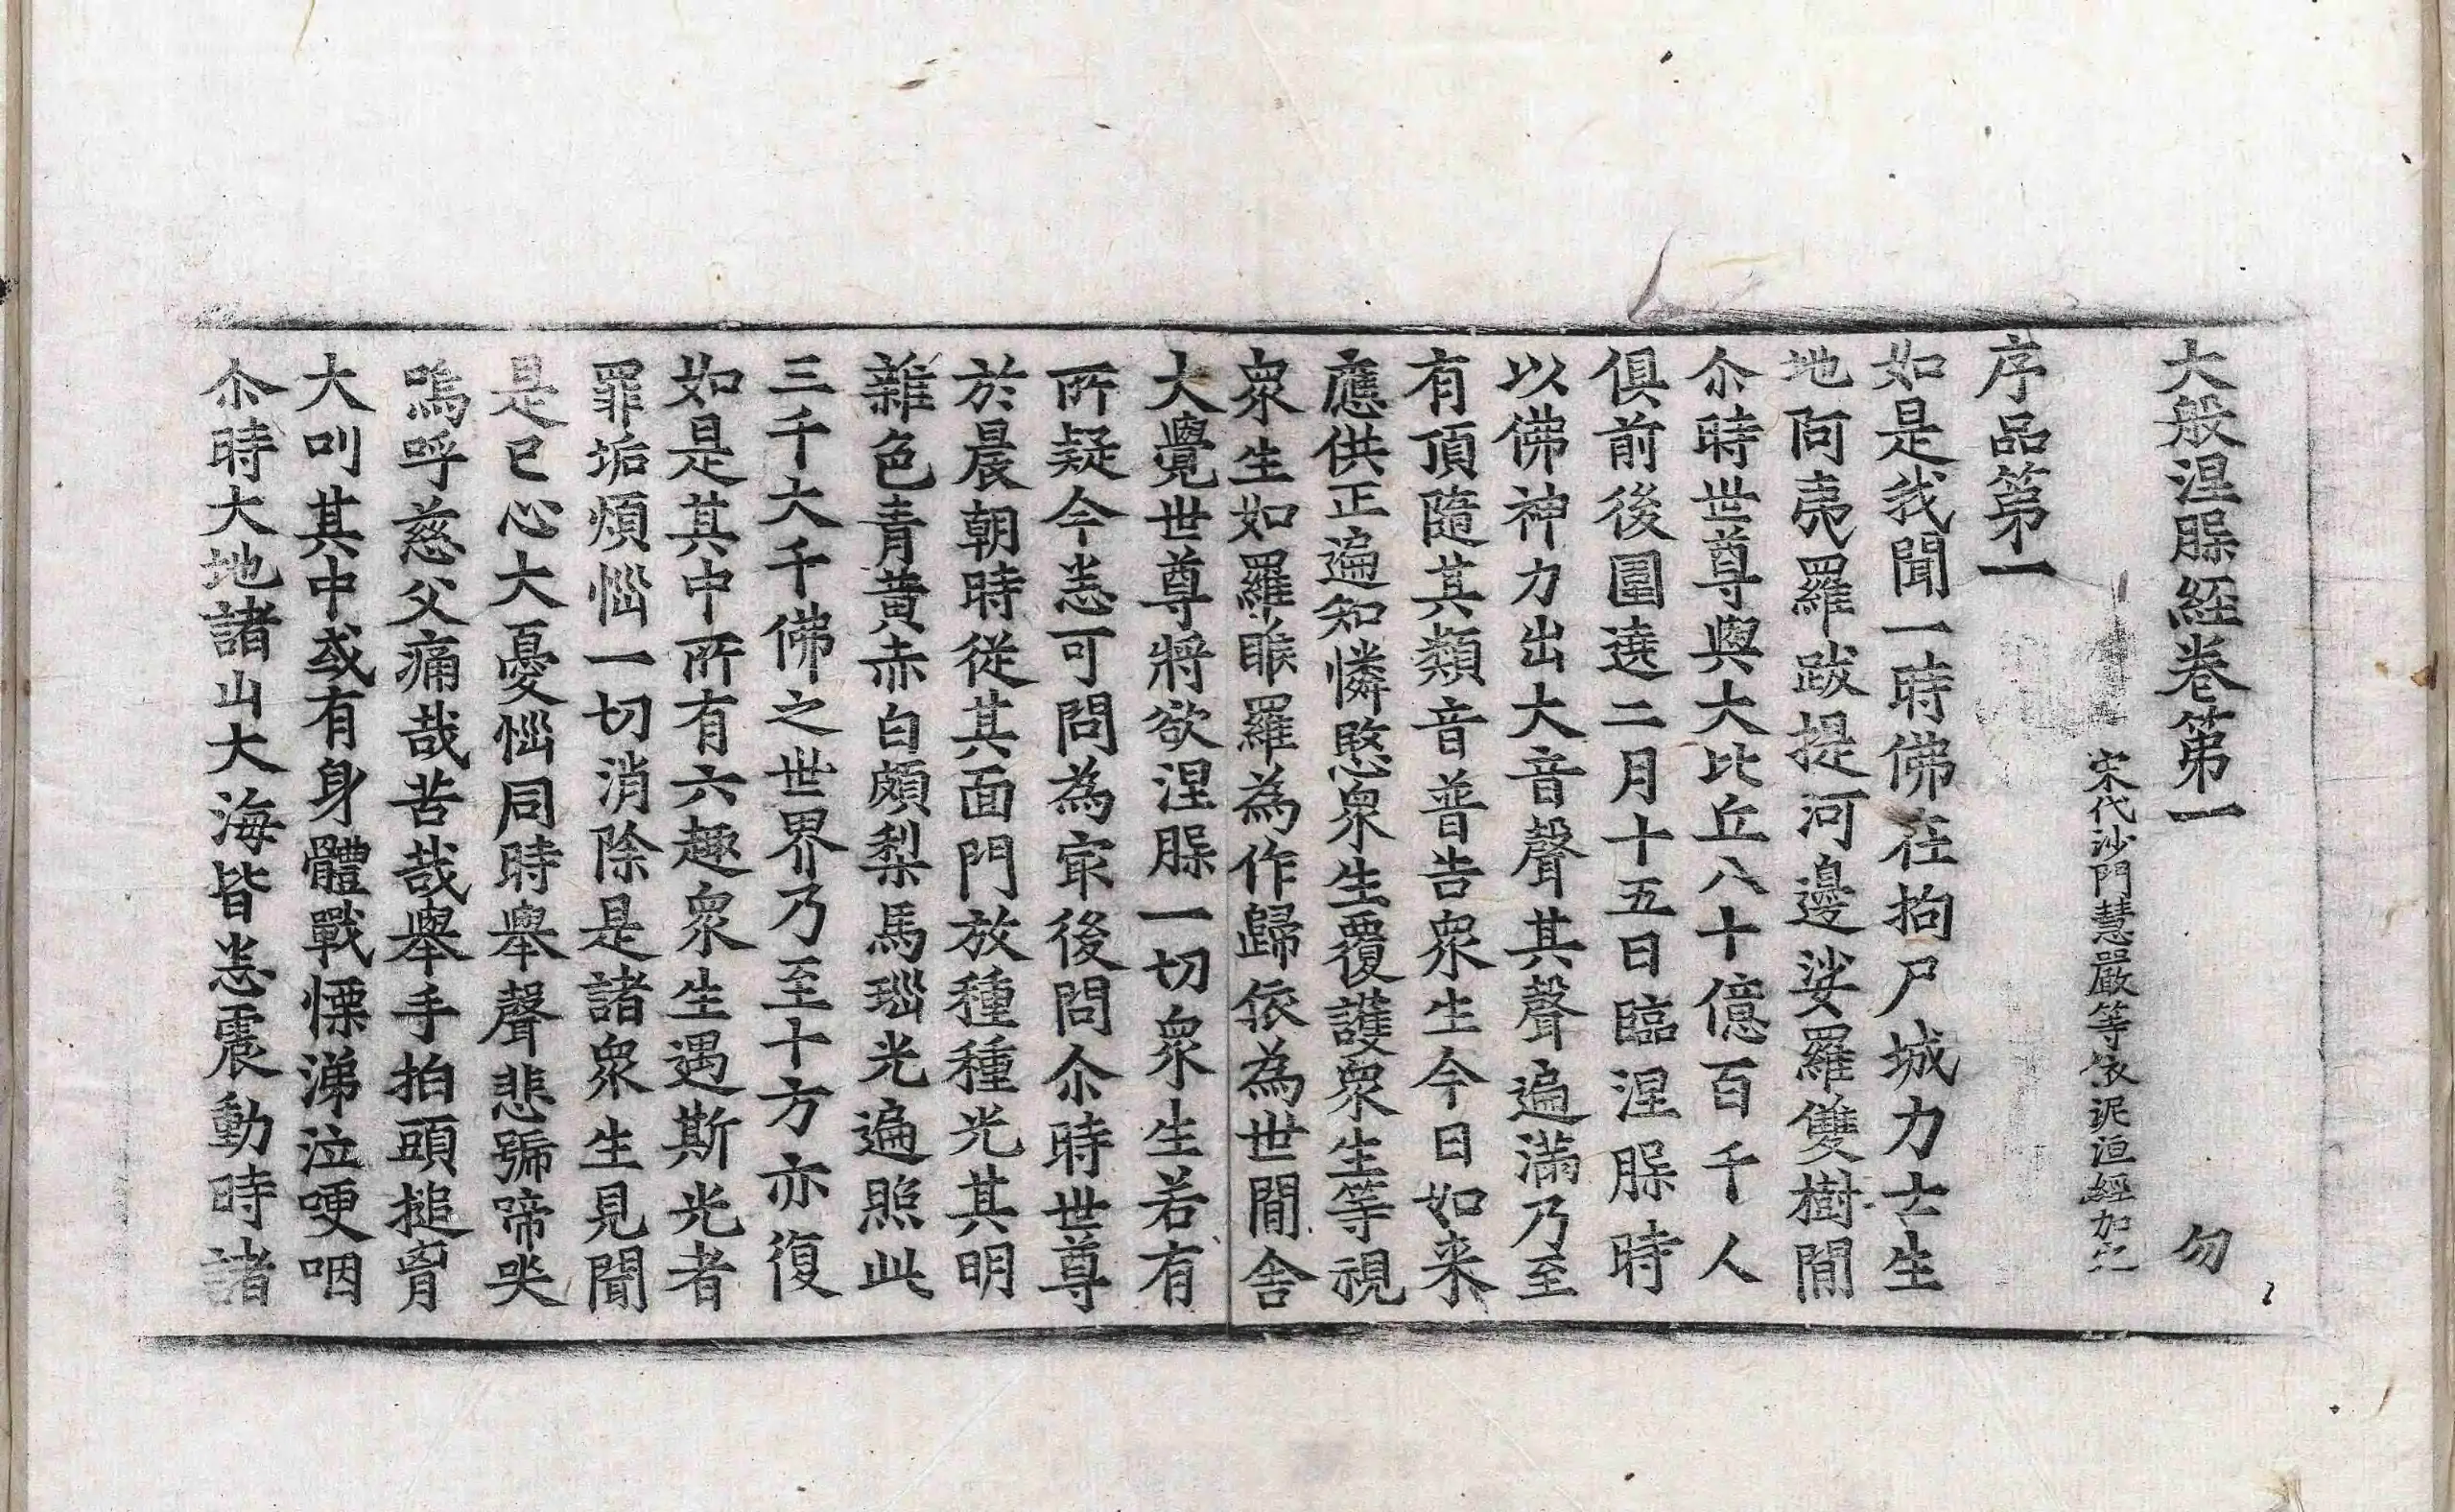 大般涅槃經卷第一　勿
宋代沙門慧嚴等依泥洹經加之
序品第一
如是我聞一時佛在拘尸城力士生
地阿夷羅跋提河邊娑羅雙樹間
尒時世尊與大比丘八十億百千人
俱前後圍遶二月十五日臨涅槃時
以佛神力出大音聲其聲遍滿乃至
有頂隨其類音普告衆生今日如来
應供正遍知憐愍衆生覆護衆生等視
衆生如羅睺羅為作歸依為世間舍
大覺世尊將欲涅槃一切衆生若有
所疑今悉可問為冣後問尒時世尊
於晨朝時從其面門放種種光其明
雜色青黃赤白頗梨馬瑙光遍照此
三千大千佛之世界乃至十方亦復
如是其中所有六趣衆生遇斯光者
罪垢煩惱一切消除是諸衆生見聞
是已心大憂惱同時舉聲悲號啼哭
嗚呼慈父痛哉苦哉舉手拍頭搥胷
大叫其中或有身體戰慄涕泣哽咽
尒時大地諸山大海皆悉震動時諸